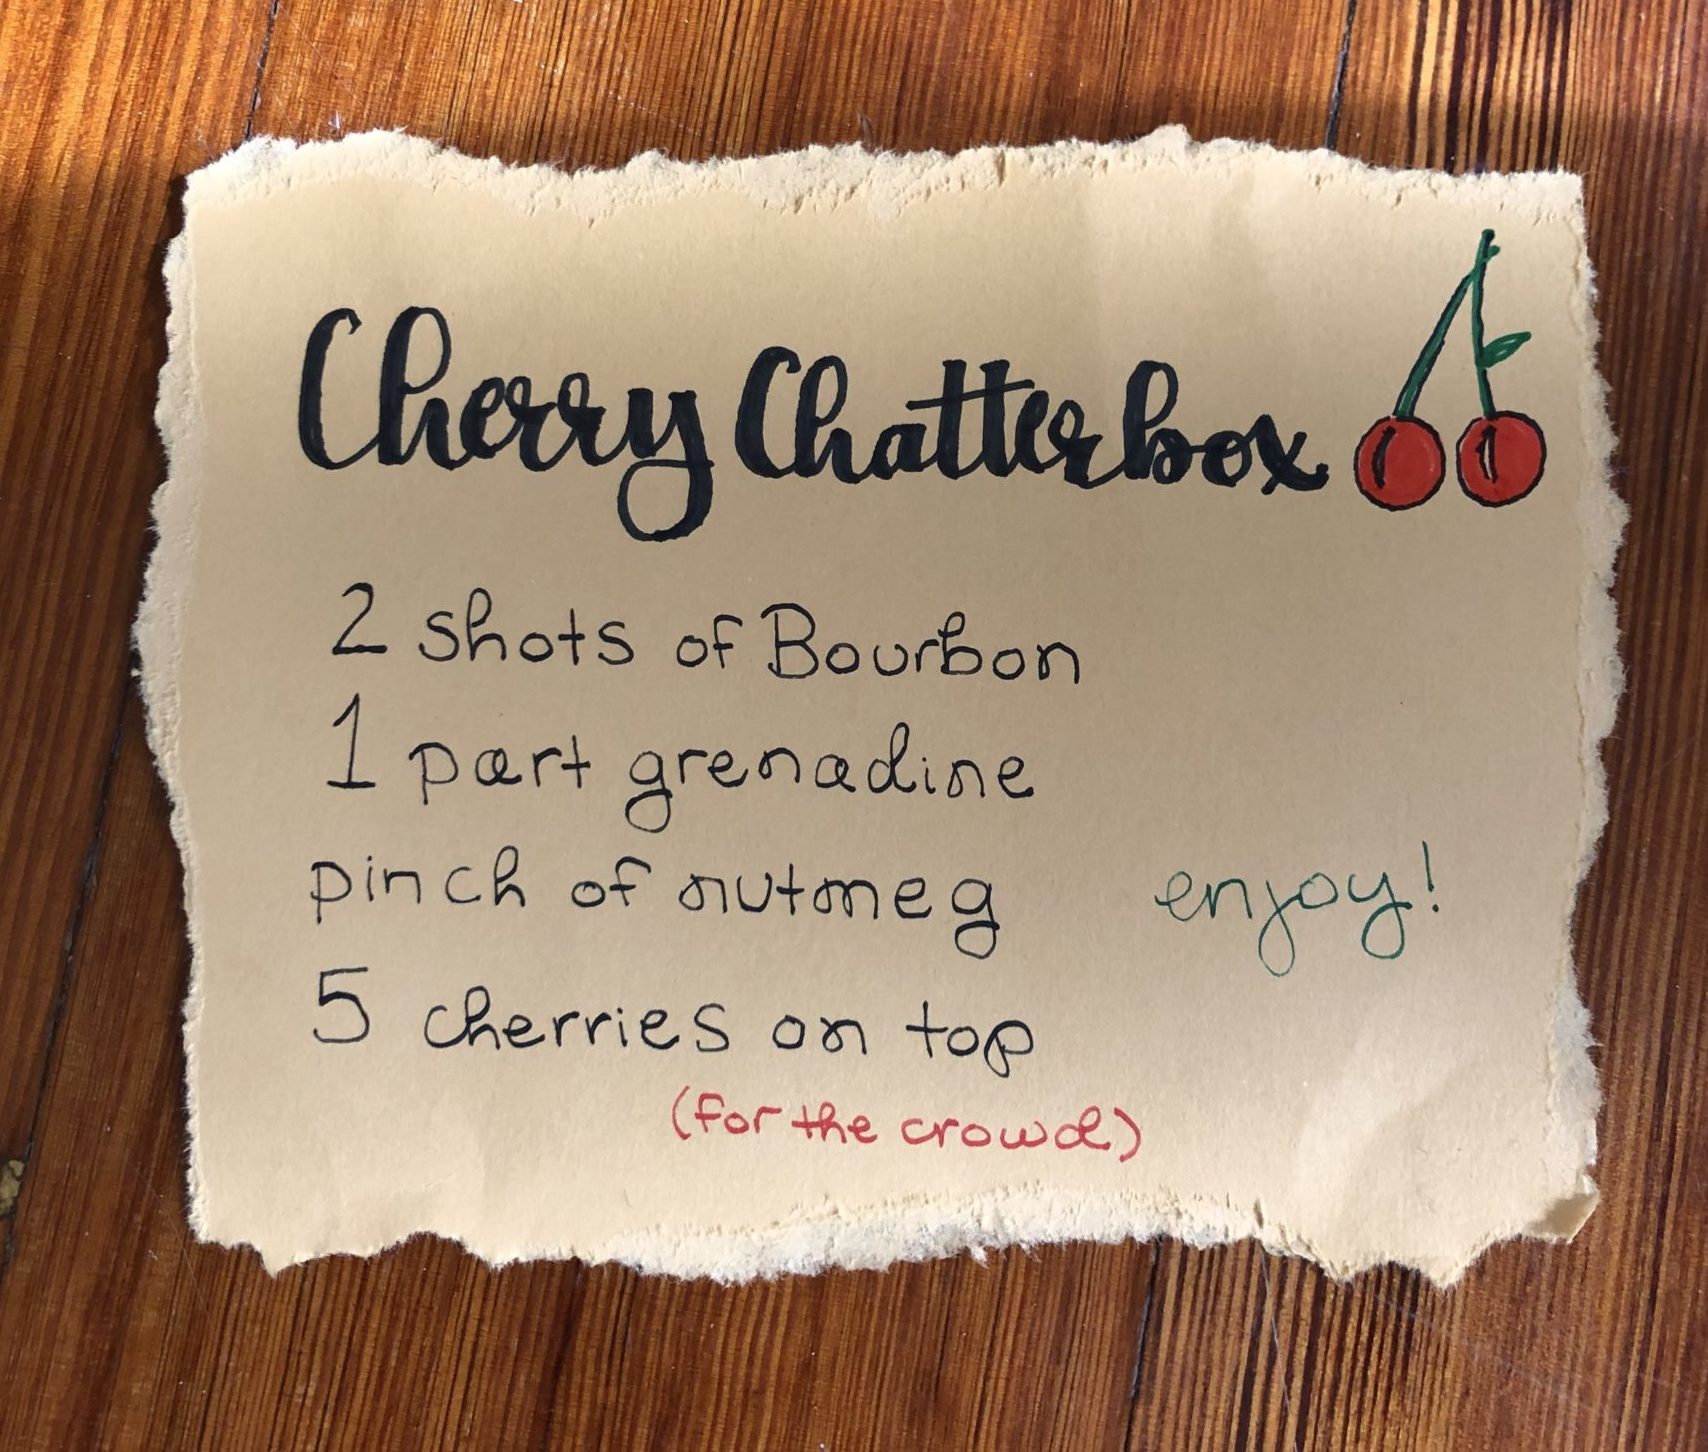 Cherry Chatterbox
2 shots of Bourbon
1 part grenadine
pinch of nutmeg
enjoy!
5 cherries on top
(for the crowd)